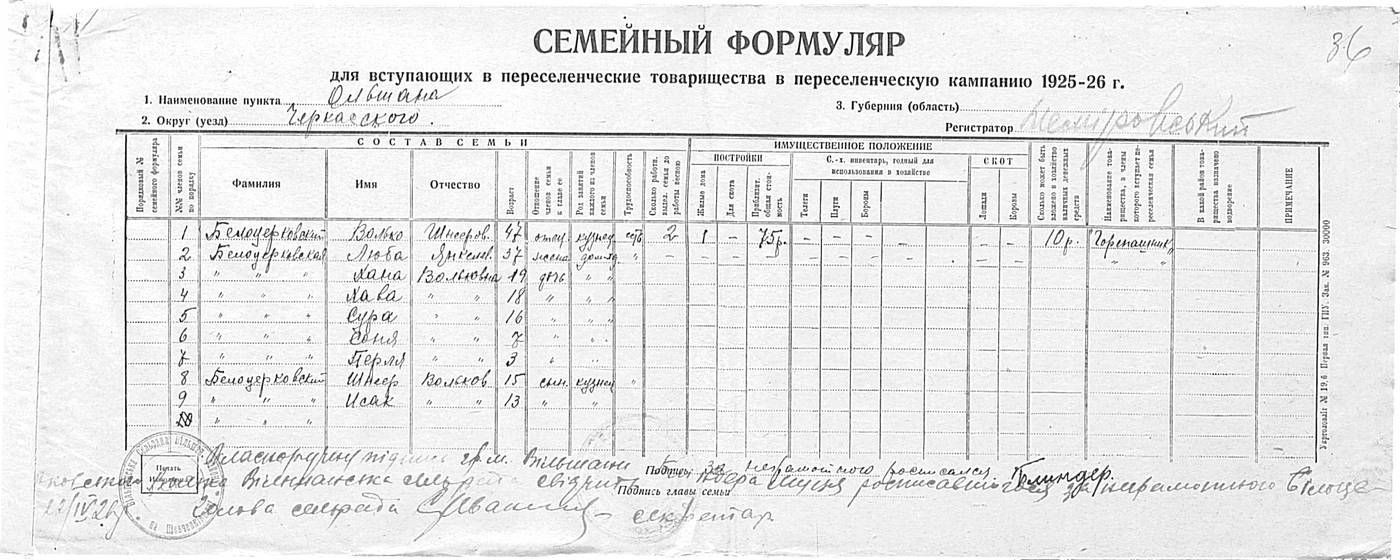 36
СЕМЕЙНЫЙ ФОРМУЛЯР
для вступающих в переселенческие товарищества в переселенческую кампанию 1925-26 г.
1. Наименование пункта Ольшана
3. Губерния (область)
2. Округ (уезд) Черкасского.
Регистратор
СОСТАВ СЕМЬИ
ИМУЩЕСТВЕННОЕ ПОЛОЖЕНИЕ
Порядковый № семейного формуляра
№№ членов семьи по порядку
Фамилия
Имя
Отчество
Возраст
Отношение членов семьи к главе ее
Род занятий каждого из членов семьи
Трудоспособность
Сколько работн. выдел. семья до работы весною
ПОСТРОЙКИ
Жилые дома
Для скота
Приблизит. общая стоимость
С.-х. инвентарь, годный для использования в хозяйстве
Телеги
Плуги
Бороны
СКОТ
Лошади
Коровы
Сколько может быть вложено в хозяйство наличных денежных средств
Наименование товарищества, в члены которого вступает переселенческая семья
В какой район товарищества назначено водворение
ПРИМЕЧАНИЕ
1 Белоцерковский Волько Шнееров. 47 отец кузнец есть 2 1 – 75р. – – – – – – 10 р. "Горепашник"
2 Белоцерковская Люба Янкелев. 37 жена домход. " – – – – – – – – . – – – " "
3 " " " Хана Вольковна 19 дочь " "
4 " " " Хава " " 18 " " "
5 " " " Сура " " 16 " " "
6 " " " Соня " " 7 " " "
7 " " " Перля " " 3 " " "
8 Белоцерковский Шнеер Вольков. 15 сын. кузнец "
9 " " " Исак " " 13 " "
10 " " "
Печать
Подпись за неграмотного росписался Блиндер.
Подпись главы семьи
Голова сельрада
секретар
Укрголовліт № 19.6 Первая тип. ГПУ. Зак. № 963 30000